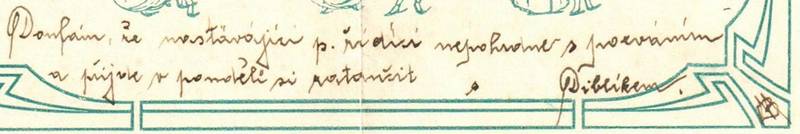 Doufám, že nastávající p. řídící nepohrdne s pozváním
a přijde v pondělí si zatančit s Diblíkem.